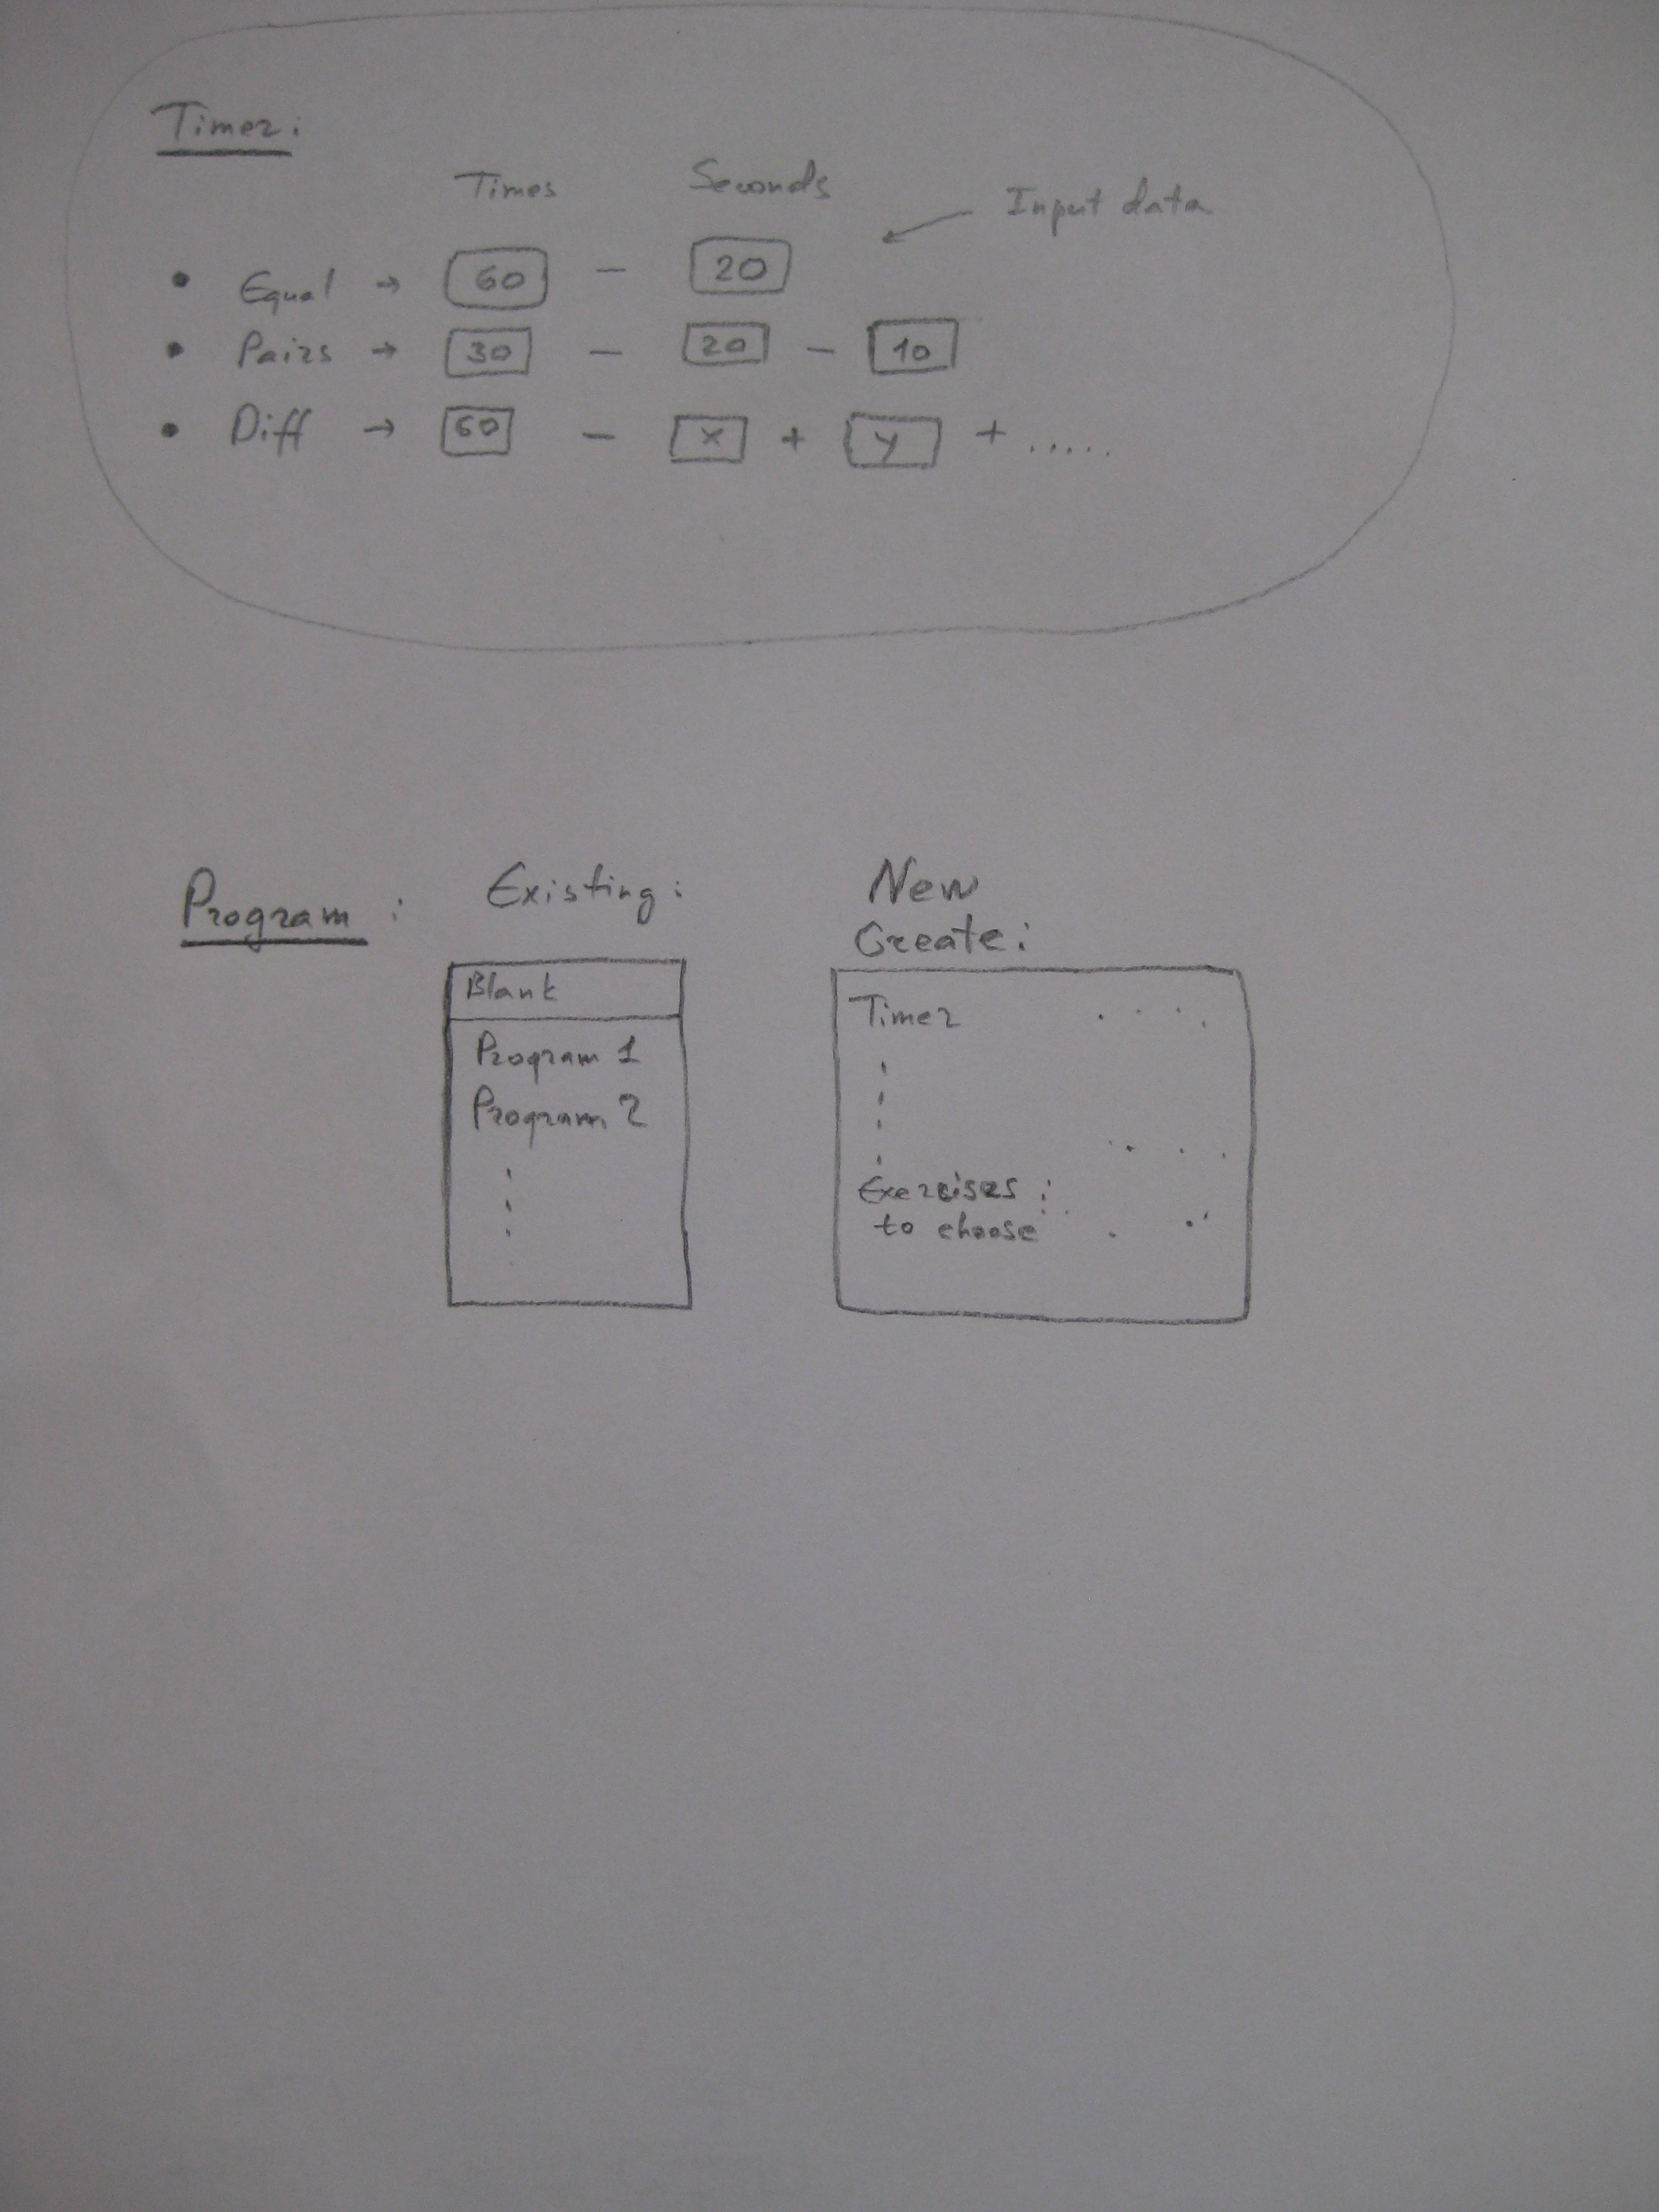 Timer:
Times Seconds
Input data
• Equal → 60 – 20
• Pairs → 30 – 20 – 10
• Diff → 60 – x + y + .....
Program : Existing: New
Create:
Blank
Program 1
Program 2
Timer . . . .
Exercises :
to choose